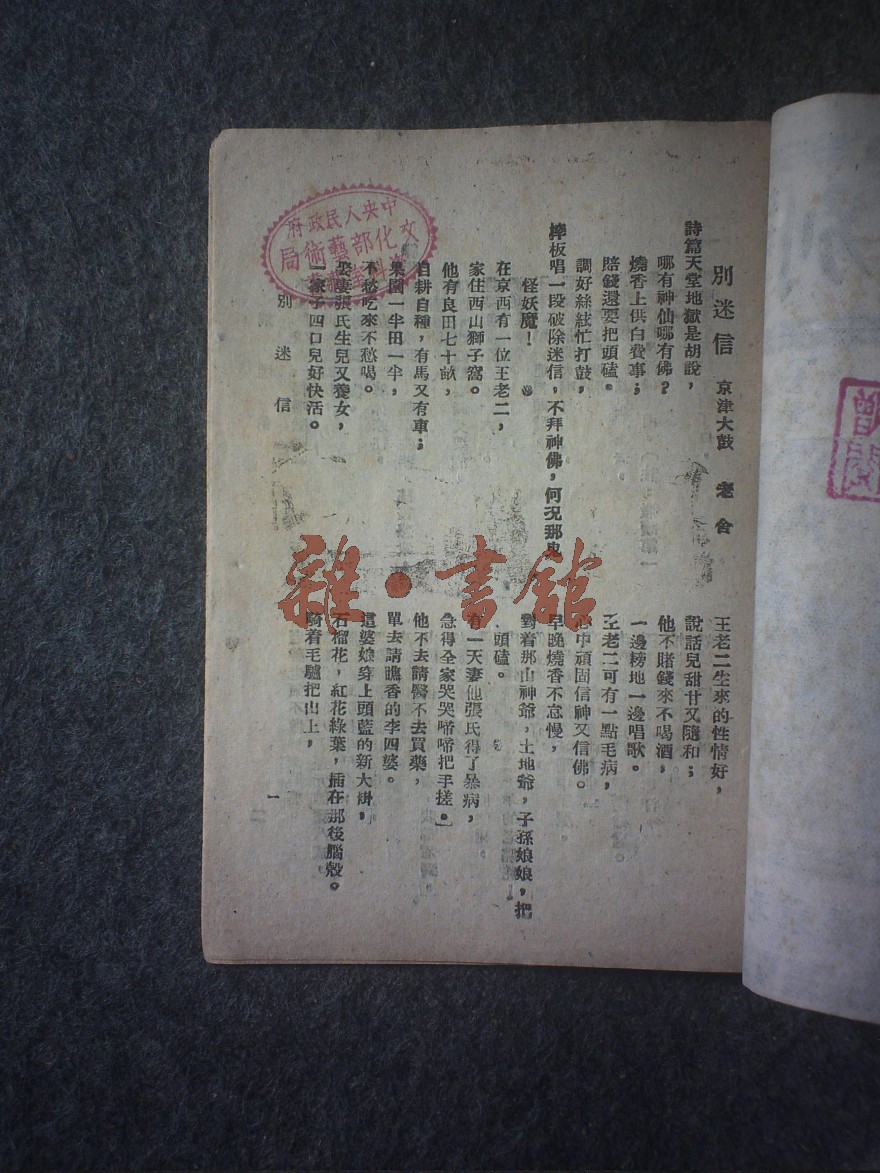 別迷信 京津大鼓 老舍
詩篇天堂地獄是胡說，
哪有神仙哪有佛？
燒香上供白費事；
賠錢還要把頭磕。
調好絲絃忙打鼓，
捧板唱一段破除迷信，不拜神佛，何況那鬼
怪妖魔！
在京西有一位王老二，
家住西山獅子窩。
他有良田七十畝，
自耕自種，有馬又有車；
果園一半田一半，
不愁吃來不愁喝。
娶妻張氏生兒又養女，
一家子四口兒好快活。
王老二生來的性情好，
說話兒甜甘又隨和；
他不賭錢來不喝酒，
一邊耪地一邊唱歌。
王老二可有一點毛病，
心中頑固信神又信佛。
早晚燒香不怠慢，
對着那山神爺，土地爺，子孫娘娘，把
頭磕。
有一天妻他張氏得了暴病，
急得全家哭哭啼啼把手搓。
他不去請醫不去買藥，
單去請瞧香的李四婆。
這婆娘穿上頭藍的新大褂，
石榴花，紅花綠葉，插在那後腦殼。
騎着毛驢把山上，
別迷信
一
中央人民政府
文化部藝術局
雜·書館